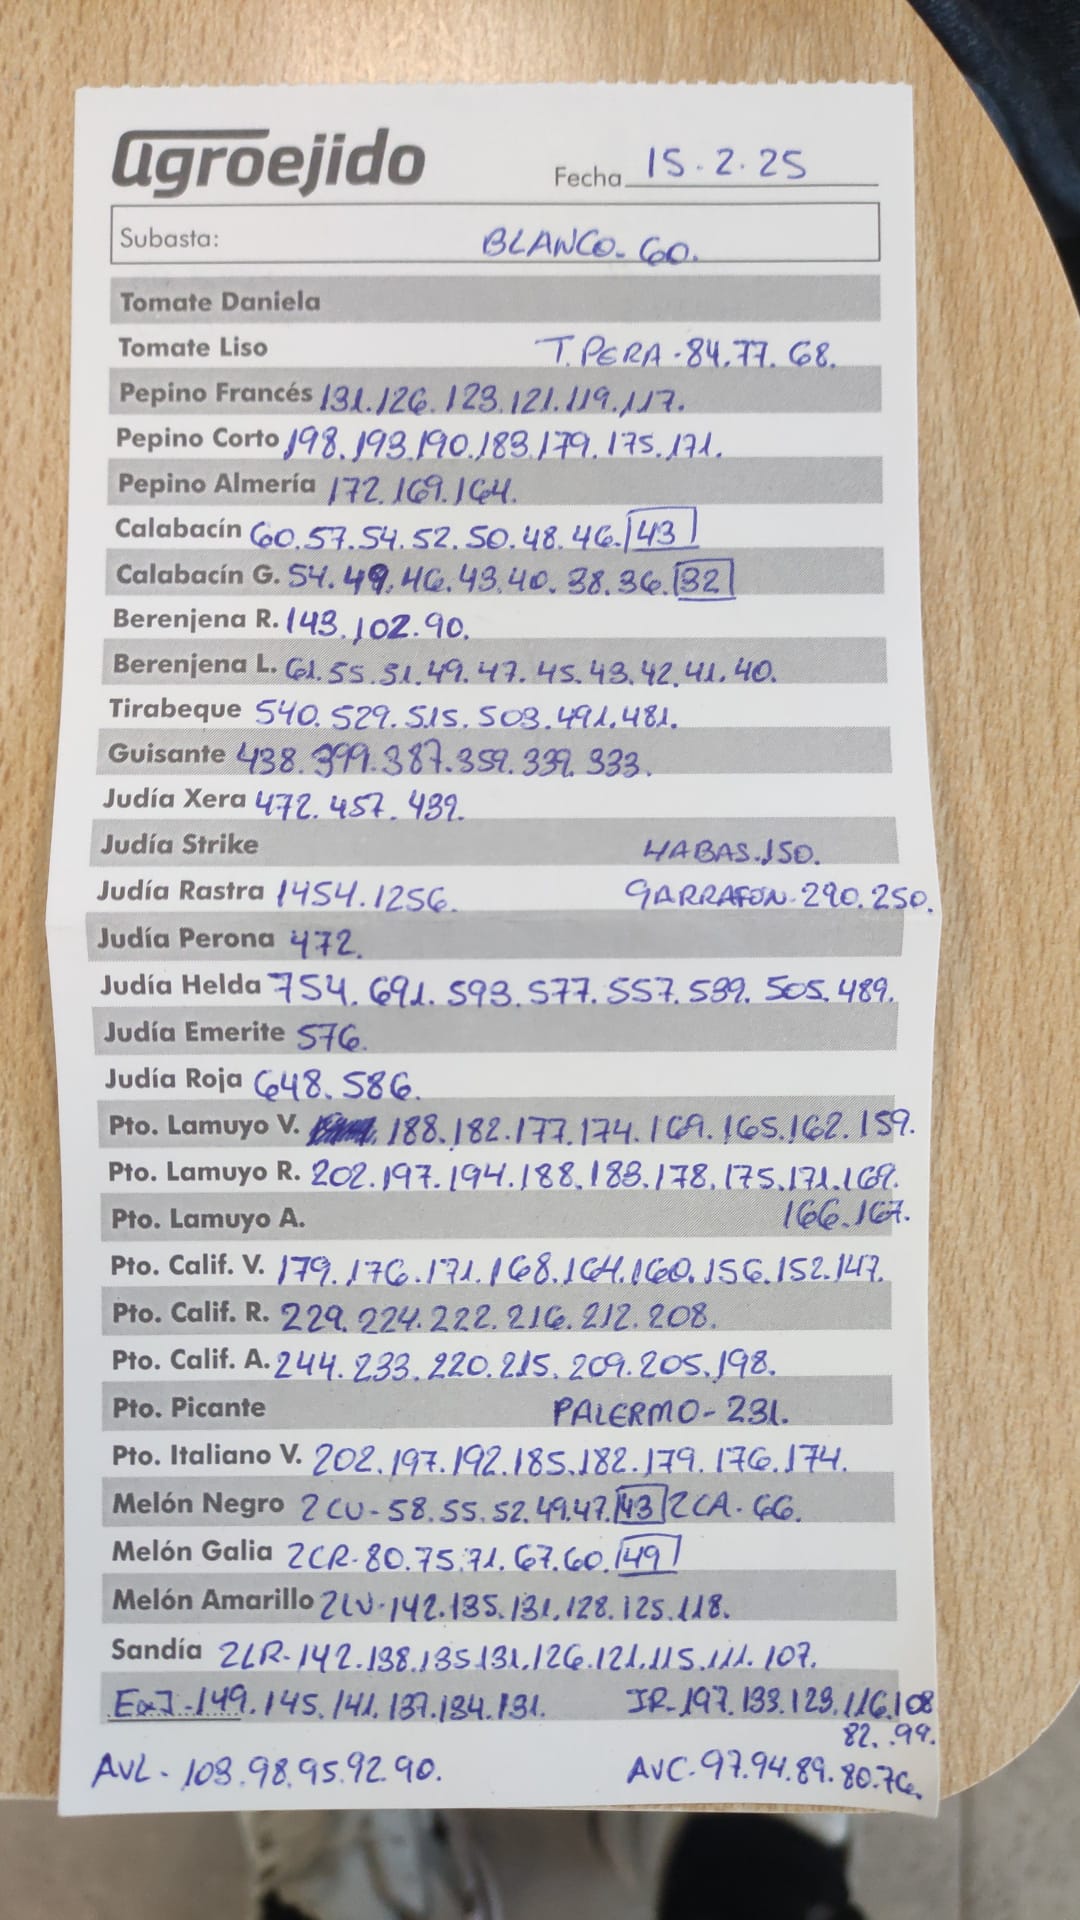 agroejido
Fecha 15.2.25
Subasta: BLANCO-60.
Tomate Daniela
Tomate Liso T.PERA-84.77.68.
Pepino Francés 131.126.123.121.119.117.
Pepino Corto 198.193.190.183.179.175.171.
Pepino Almería 172.169.164.
Calabacín 60.57.54.52.50.48.46.43
Calabacín G. 54.49.46.43.40.38.36.32
Berenjena R. 143.102.90.
Berenjena L. 61.55.51.49.47.45.43.42.41.40.
Tirabeque 540.529.515.503.491.481.
Guisante 438.399.387.359.339.333.
Judía Xera 472.457.439.
Judía Strike HABAS.150.
Judía Rastra 1454.1256. GARRAFON-290.250.
Judía Perona 472.
Judía Helda 754.691.593.577.557.539.505.489.
Judía Emerite 576.
Judía Roja 648.586.
Pto. Lamuyo V. 188.182.177.174.169.165.162.159.
Pto. Lamuyo R. 202.197.194.188.183.178.175.171.169.
Pto. Lamuyo A. 166.167.
Pto. Calif. V. 179.176.171.168.164.160.156.152.147.
Pto. Calif. R. 229.224.222.216.212.208.
Pto. Calif. A. 244.233.220.215.209.205.198.
Pto. Picante PALERMO-231.
Pto. Italiano V. 202.197.192.185.182.179.176.174.
Melón Negro 2CU-58.55.52.49.47.43 2CA-66.
Melón Galia 2CR-80.75.71.67.60.49
Melón Amarillo 2LV-142.135.131.128.125.118.
Sandía 2LR-142.138.135.131.126.121.115.111.107.
-149.145.141.137.134.131. JR-197.133.123.116.108
82.99.
AVL-103.98.95.92.90. AVC-97.94.89.80.76.